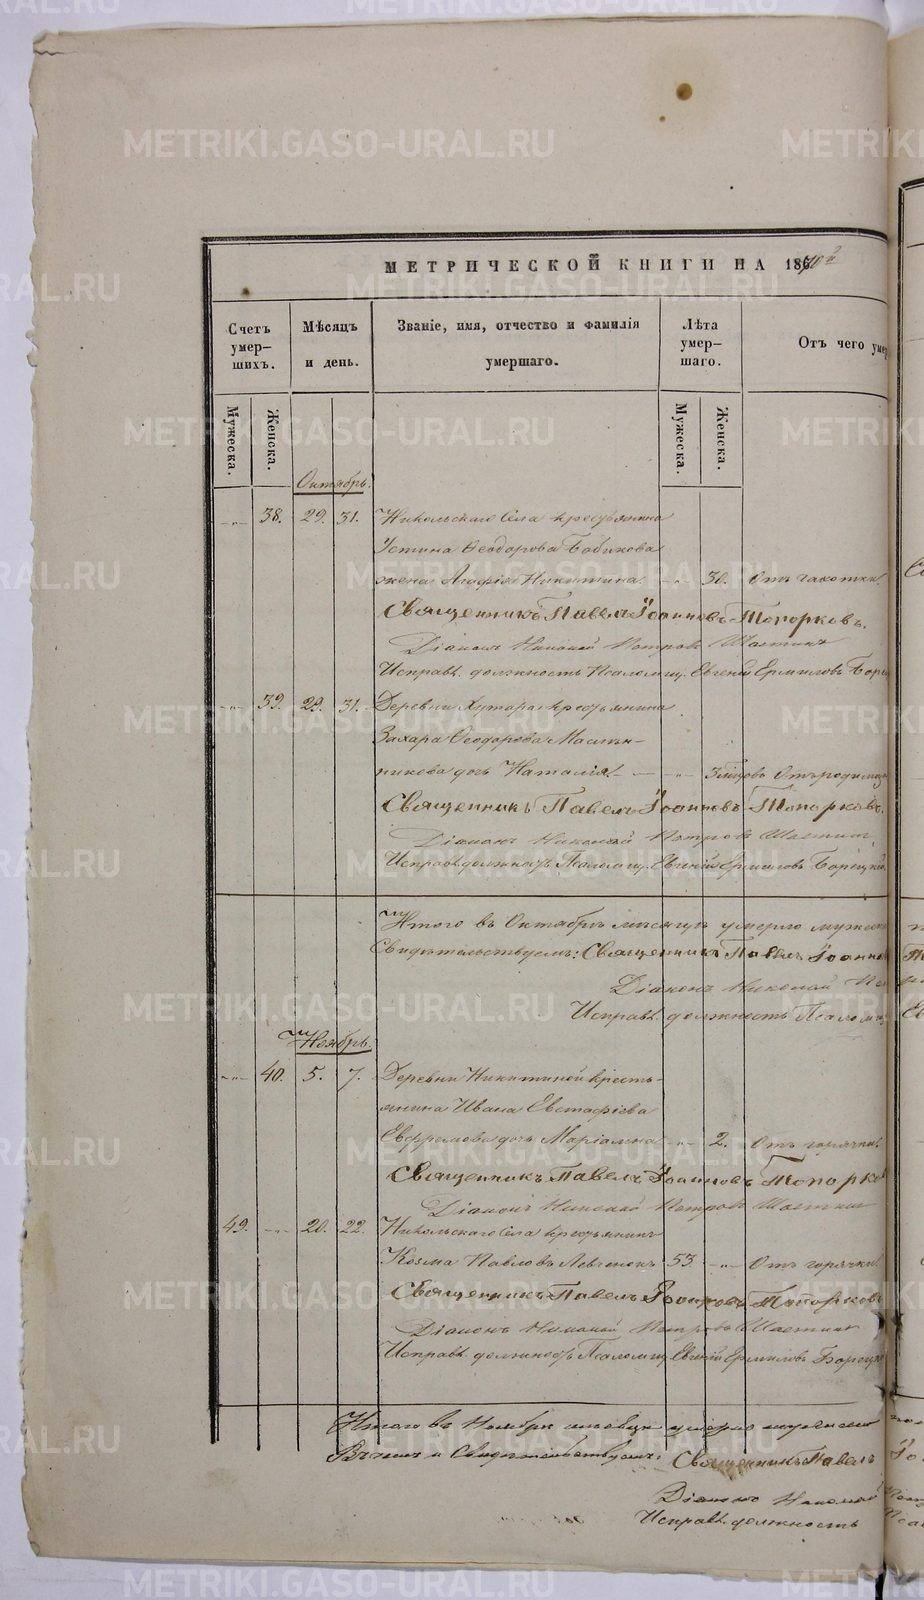 МЕТРИЧЕСКОЙ КНИГИ НА 1870й
Счетъ умер-шихъ.
Мѣсяцъ и день.
Званіе, имя, отчество и фамилія умершаго.
Лѣта умер-шаго.
Отъ чего умер
Мужеска.
Женска.
Мужеска.
Женска.
Октябрь.
-"- 38. 29. 31. Никольскаго Села крестьянина
Устина Ѳеодорова Бабикова
жена Агафія Никитина. -"- 30. Отъ чахотки.
Священникъ Павелъ Іоанновъ Топорковъ.
Діаконъ Николай Петровъ
Исправл. должность Псаломщ. Евгеній Ермиловъ
-"- 39. 29. 31. Деревни Хутора крестьянина
Захара Ѳеодорова Маслен-
никова дочь Наталія. -"- 3 мѣсцовъ Отъ родимца
Священникъ Павелъ Іоанновъ Топорковъ.
Діаконъ Николай Петровъ
Исправ. должность Псаломщ. Евгеній Ермиловъ Борецкій
Итого въ Октябрѣ мѣсяцѣ умерло мужеска
Свидѣтельствуемъ: Священникъ Павелъ Іоаннов
Діаконъ Николай Пе
Исправл. должность Псалом
Ноябрь.
-"- 40. 5. 7. Деревни Никитиной кресть-
янина Ивана Евстафіева
Ефремова дочь Маріамна -"- 2. Отъ горячки.
Священникъ Павелъ Іоанновъ Топорков
Діаконъ Николай Петровъ
49. -"- 20. 22. Никольскаго Села крестьянинъ
Козма Павловъ 53 -"- Отъ горячки.
Священникъ Павелъ Іоанновъ Топорковъ
Діаконъ Николай Петровъ
Исправл. должность Псаломщ. Евгеній Ермиловъ Борецк
Итого въ Ноябрѣ мѣсяцѣ умерло мужеска
и Свидѣтельствуемъ: Священникъ Павелъ
Діаконъ Николай
Исправл. должность
METRIKI.GASO-URAL.RU